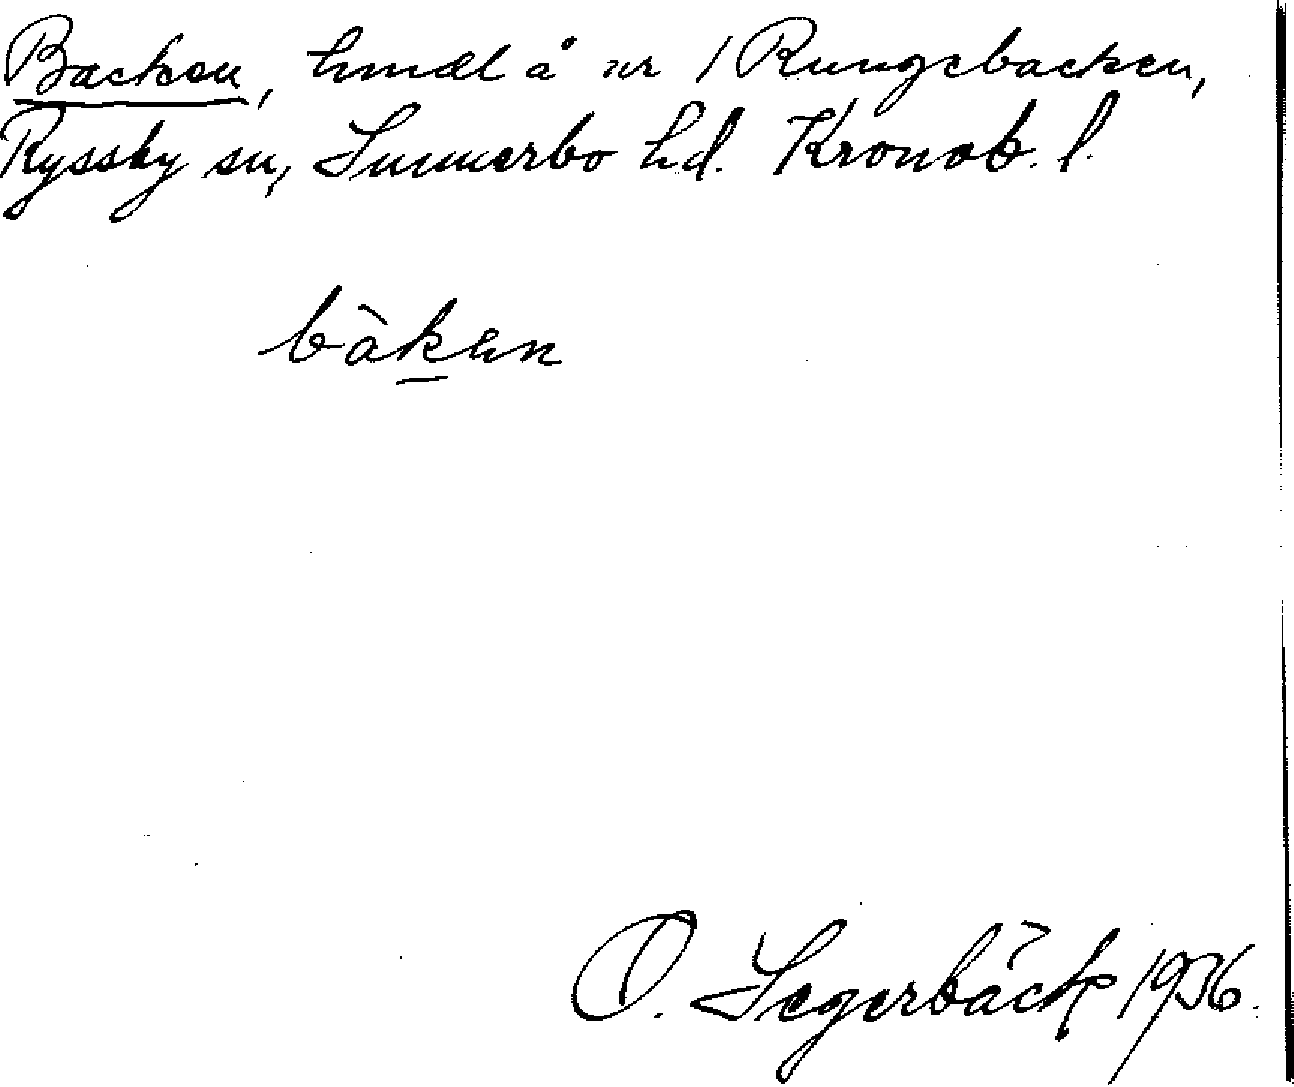 Backen, hmdl å nr 1 Rungebacken,
Ryssby sn, Sunnerbo hd. Kronob. l.
bàken
O. Segerbäck 1936.